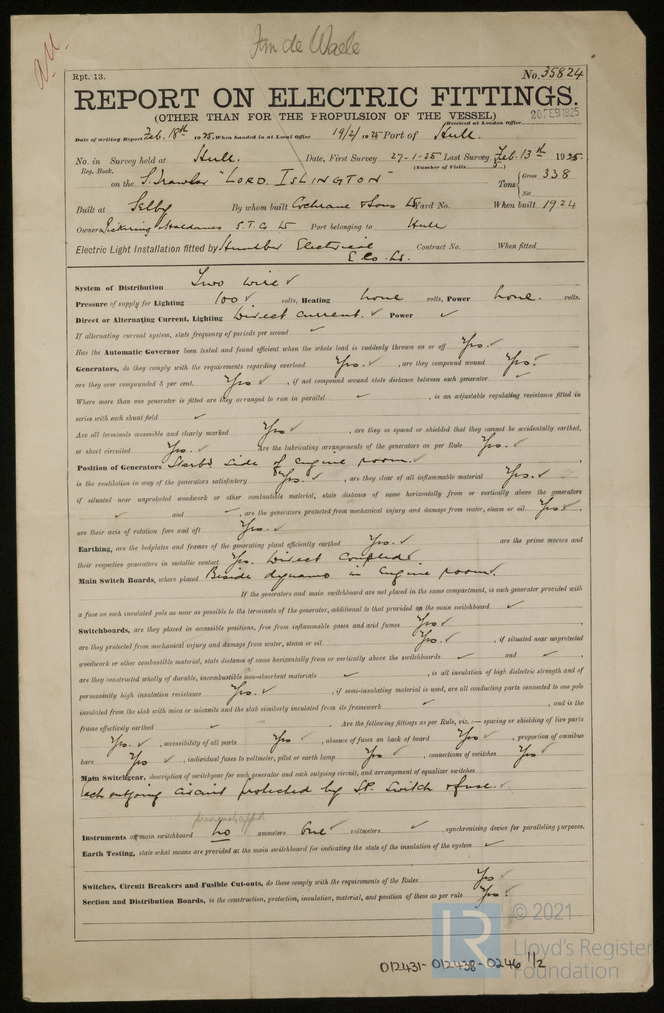 Jim de Waele
Rpt. 13.
No. 35824
REPORT ON ELECTRIC FITTINGS.
(OTHER THAN FOR THE PROPULSION OF THE VESSEL)
Received at London Office 20 FEB 1925
Date of writing Report Feb. 18th 1925. When handed in at Local Office 19/2/1925 Port of Hull.
No. in Survey held at Hull. Date, First Survey 27-1-25 Last Survey Feb. 13th 1925.
Reg. Book. (Number of Visits 5)
on the S. Trawler "LORD ISLINGTON" Tons { Gross 338
Net
Built at Selby By whom built Cochrane & Sons Ld Yard No. When built 1924
Owners Pickering & Haldanes S. T. Co Ld Port belonging to Hull
Electric Light Installation fitted by Humber Electrical E Co. Ld. Contract No. When fitted
System of Distribution Two wire ✓
Pressure of supply for Lighting 100 ✓ volts, Heating none volts, Power none. volts.
Direct or Alternating Current, Lighting Direct current. ✓ Power ✓
If alternating current system, state frequency of periods per second ✓
Has the Automatic Governor been tested and found efficient when the whole load is suddenly thrown on or off Yes. ✓
Generators, do they comply with the requirements regarding overload Yes. ✓, are they compound wound Yes. ✓
are they over compounded 5 per cent. Yes ✓, if not compound wound state distance between each generator ✓
Where more than one generator is fitted are they arranged to run in parallel ✓, is an adjustable regulating resistance fitted in
series with each shunt field ✓
Are all terminals accessible and clearly marked Yes ✓, are they so spaced or shielded that they cannot be accidentally earthed,
or short circuited Yes. ✓ Are the lubricating arrangements of the generators as per Rule Yes. ✓
Position of Generators Starbd side of Engine room. ✓
is the ventilation in way of the generators satisfactory Yes. ✓, are they clear of all inflammable material Yes. ✓
if situated near unprotected woodwork or other combustible material, state distance of same horizontally from or vertically above the generators
✓ and ✓, are the generators protected from mechanical injury and damage from water, steam or oil Yes ✓,
are their axis of rotation fore and aft Yes. ✓
Earthing, are the bedplates and frames of the generating plant efficiently earthed Yes. ✓ are the prime movers and
their respective generators in metallic contact Yes. Direct Coupled ✓
Main Switch Boards, where placed Beside dynamo in Engine room.
If the generators and main switchboard are not placed in the same compartment, is each generator provided with
a fuse on each insulated pole as near as possible to the terminals of the generator, additional to that provided on the main switchboard ✓
Switchboards, are they placed in accessible positions, free from inflammable gases and acid fumes Yes ✓,
are they protected from mechanical injury and damage from water, steam or oil Yes. ✓, if situated near unprotected
woodwork or other combustible material, state distance of same horizontally from or vertically above the switchboards ✓ and ✓,
are they constructed wholly of durable, incombustible non-absorbent materials ✓, is all insulation of high dielectric strength and of
permanently high insulation resistance Yes. ✓, if semi-insulating material is used, are all conducting parts connected to one pole
insulated from the slab with mica or micanite and the slab similarly insulated from its framework ✓, and is the
frame effectively earthed ✓. Are the following fittings as per Rule, viz.:— spacing or shielding of live parts
Yes. ✓, accessibility of all parts Yes ✓, absence of fuses on back of board Yes ✓, proportion of omnibus
bars Yes ✓, individual fuses to voltmeter, pilot or earth lamp Yes ✓, connections of switches Yes ✓
Main Switchgear, description of switchgear for each generator and each outgoing circuit, and arrangement of equalizer switches
Each outgoing circuit protected by S.P. Switch & fuse. ✓
Instruments on main switchboard no ammeters One ✓ voltmeters ✓ synchronising device for paralleling purposes.
Earth Testing, state what means are provided at the main switchboard for indicating the state of the insulation of the system ✓
Switches, Circuit Breakers and Fusible Cut-outs, do these comply with the requirements of the Rules Yes ✓
Section and Distribution Boards, is the construction, protection, insulation, material, and position of these as per rule Yes. ✓
LR © 2021
Lloyd's Register
Foundation
012431-012438-0246 1/2